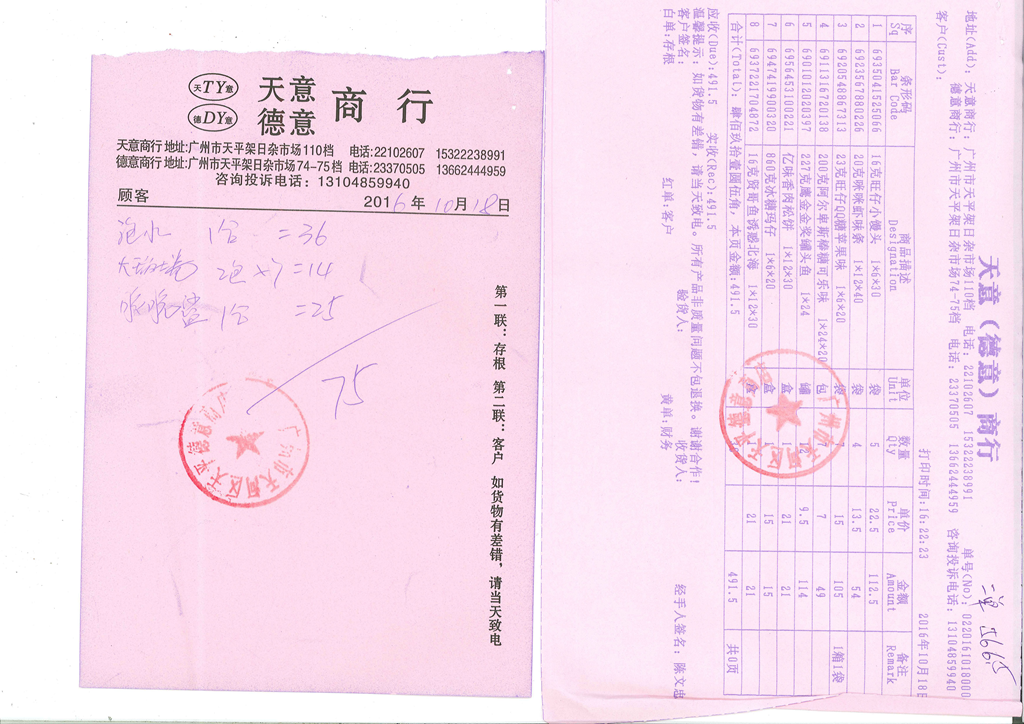 天TY意
德DY意
天意
德意
商行
天意商行 地址:广州市天平架日杂市场110档 电话:22102607 15322238991
德意商行 地址:广州市天平架日杂市场74-75档 电话:23370505 13662444959
咨询投诉电话：13104859940
顾客 2016年10月18日
1台 =36
2包×7=14
1台 =25
75
第一联：存根 第二联：客户 如货物有差错，请当天致电
天意（德意）商行
二单 566.5
地址(Add): 天意商行: 广州市天平架日杂市场110档 电话: 22102607 15322238991 单号(No): 0220161018000
德意商行: 广州市天平架日杂市场74-75档 电话: 23370505 13662444959 咨询投诉电话: 13104859940
客户(Cust):
打印时间:16:22:23 2016年10月18日
序 条形码 商品描述 单位 数量 单价 金额 备注
Sq Bar Code Designation Unit Qty price Amount Remark
1 6935041525066 16克旺仔小馒头 1*6*30 袋 5 22.5 112.5
2 6923567880226 20克咪咪虾味条 1*12*40 袋 4 13.5 54
3 6920548867313 23克旺仔QQ糖苹果味 1*6*20 袋 7 15 105 1箱1袋
4 6911316720138 200克阿尔卑斯棒糖可乐味 1*24*20 包 7 7 49
5 6901012020397 227克鹰金金奖罐头鱼 1*24 罐 12 9.5 114
6 6956453100221 亿味香肉松饼 1*12*30 盒 1 21 21
7 6947419900320 860克冰糖玛仔 1*6*20 盒 1 15 15
8 6937221704872 16克贤哥鱼诱惑北海 1*12*30 盒 1 21 21
合计(Total): 肆佰玖拾壹圆伍角，本页金额:491.5 491.5 共0页
应收(Due):491.5 实收(Rec):491.5
温馨提示: 如货物有差错，请当天致电。所有产品非质量问题不包退换。谢谢合作!
客户签名: 验货人: 收货人: 经手人签名: 陈文忠
白单:存根 红单:客户 黄单:财务